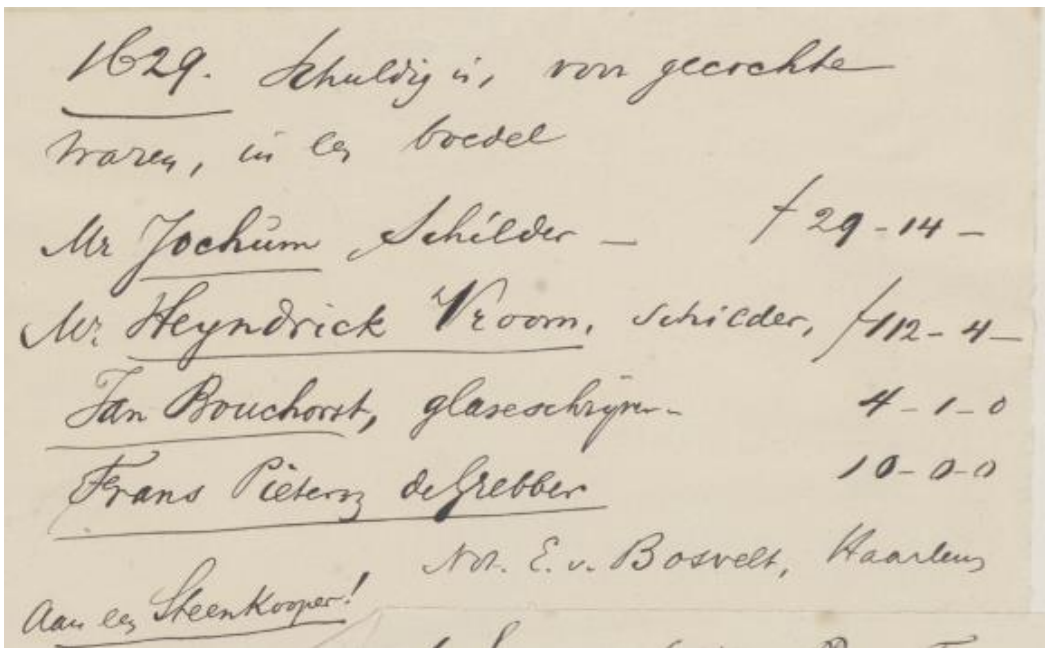 1629. Schuldig is, voor gecochte
waren, in een boedel
Mr Jochum Schilder – f 29-14-
Mr Heyndrick Vroom, schilder, f 112-4-
Jan Bouchorst, glaseschryver - 4-1-0
Frans Pietersz de Grebber 10-0-0
Not. E. v. Bosvelt, Haarlem
Aan een Steenkooper!